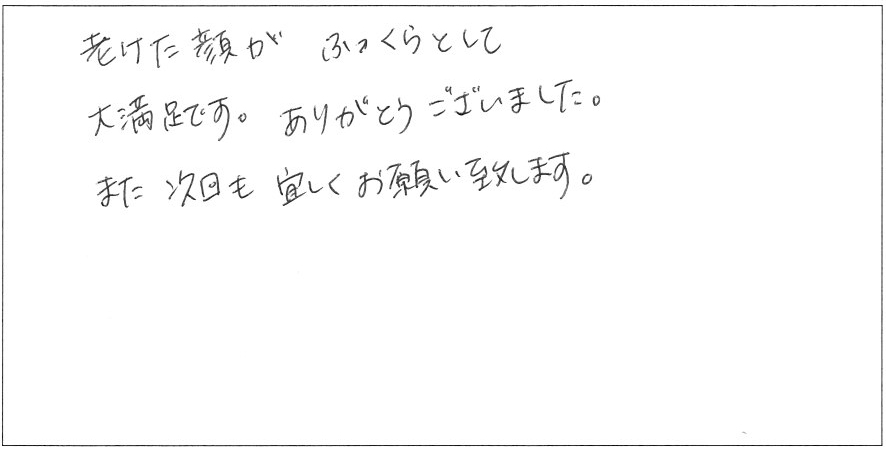 老けた顔が ふっくらとして
大満足です。ありがとうございました。
また次回も 宜しくお願い致します。